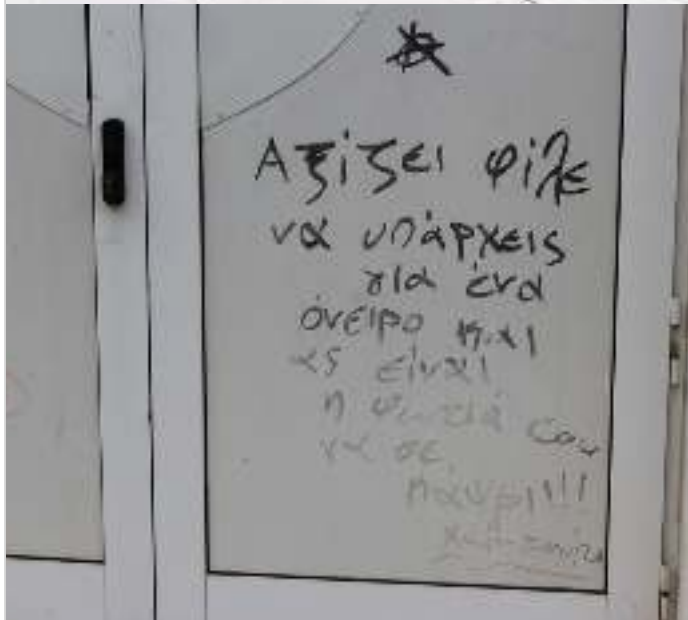 Αξίζει φίλε
να υπάρχεις
για ένα
όνειρο κ.αι
ας είναι
η φωτιά σου
να σε